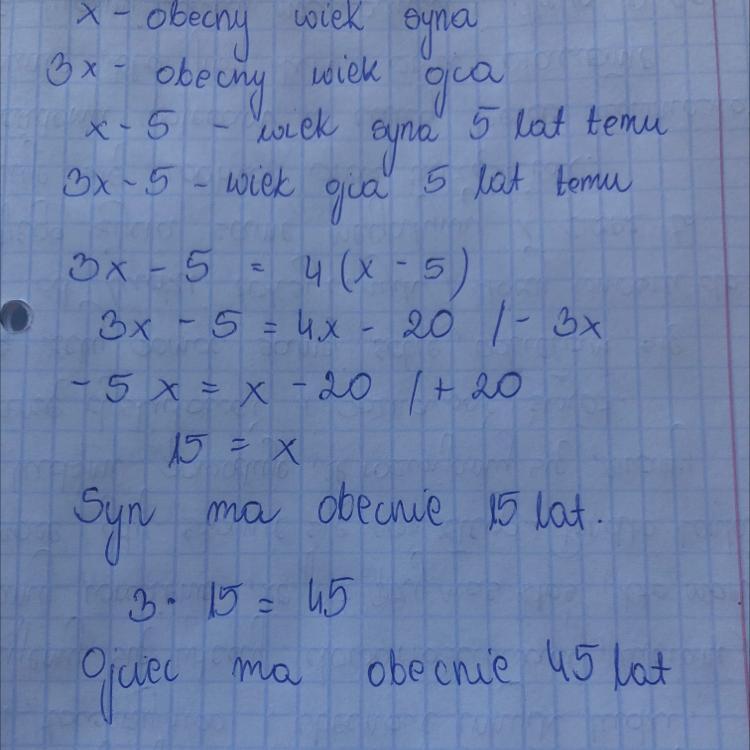 x - obecny wiek syna
3x - obecny wiek ojca
x - 5 - wiek syna 5 lat temu
3x - 5 - wiek ojca 5 lat temu
3x - 5 = 4(x - 5)
3x - 5 = 4x - 20 /- 3x
- 5 x = x - 20 /+ 20
15 = x
Syn ma obecnie 15 lat.
3 · 15 = 45
Ojciec ma obecnie 45 lat